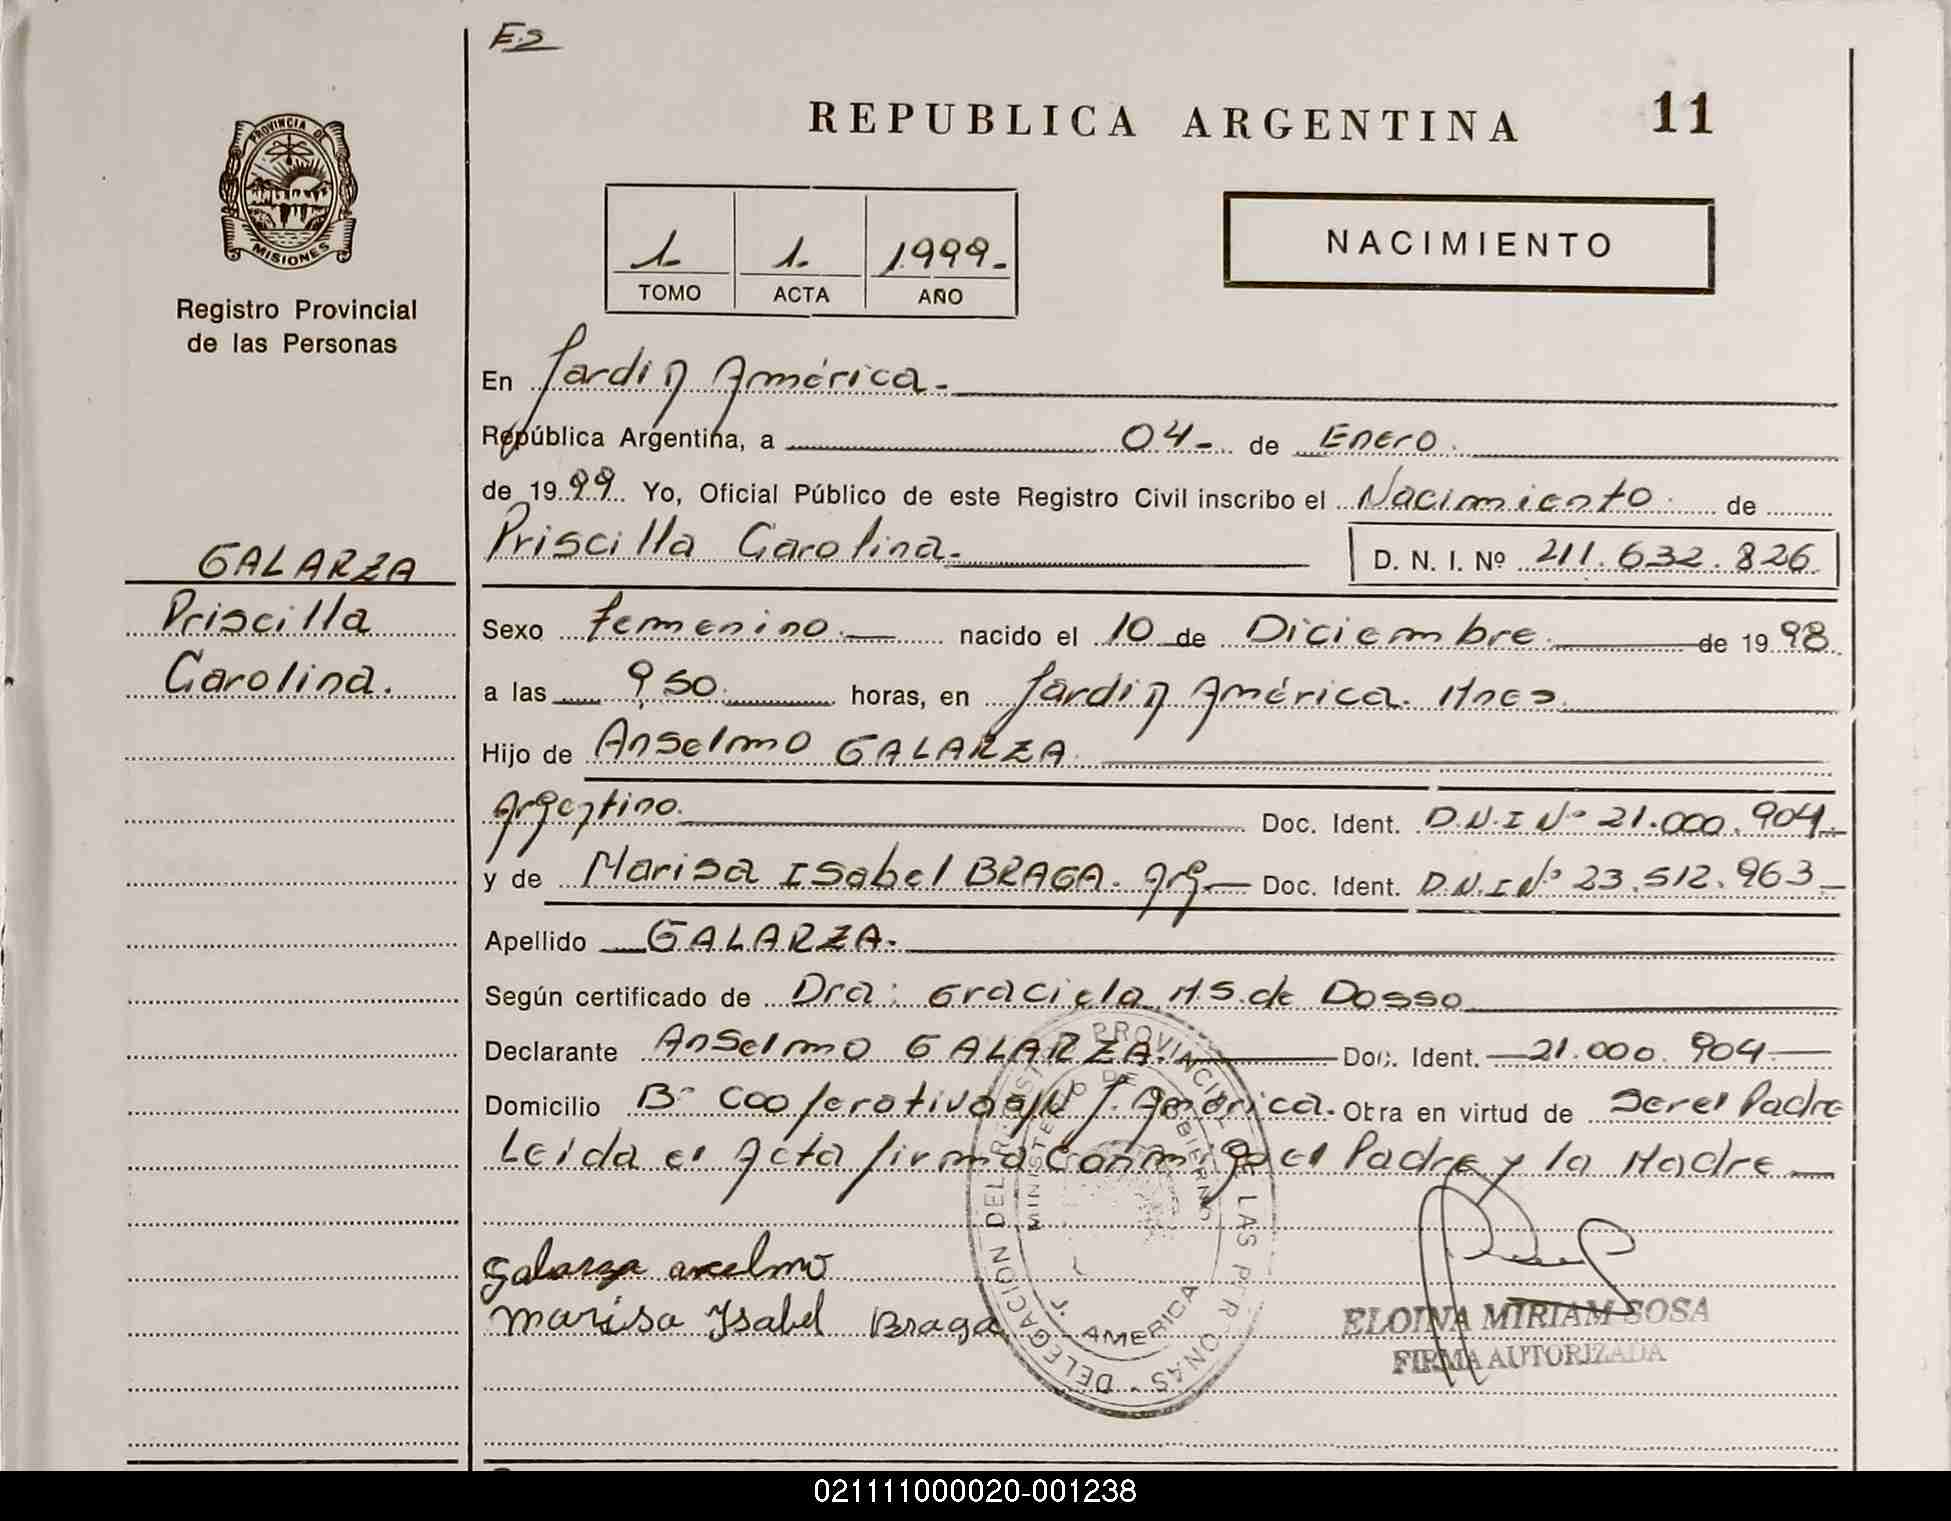 E.S
REPUBLICA ARGENTINA 11
PROVINCIA DE
MISIONES
Registro Provincial
de las Personas
1 1 1999.-
TOMO ACTA AÑO
NACIMIENTO
En Jardin América.-
República Argentina, a 04- de Enero.
de 1999 Yo, Oficial Público de este Registro Civil inscribo el Nacimiento de
Priscilla Carolina.- D. N. I. Nº 211.632.826
GALARZA
Priscilla
Carolina.
Sexo femenino.— nacido el 10 de Diciembre. de 1998
a las 9,50 horas, en Jardin América. Mnes.
Hijo de Anselmo GALARZA.
Argentino. Doc. Ident. D.N.I Nº 21.000.904.-
y de Marisa ISabel BRAGA. Arg.— Doc. Ident. D.N.I Nº 23.512.963.-
Apellido GALARZA.-
Según certificado de Dra: Graciela M.S. de Dosso
Declarante AnSelmo GALARZA. Doc. Ident. —21.000.904—
Domicilio Bº Cooperativa s/Nº J. América. Obra en virtud de Ser el Padre
Leida el Acta firma conmigo el Padre y la Madre—
galarza anselmo
marisa Ysabel Braga
ELOINA MIRIAM SOSA
FIRMA AUTORIZADA
MINISTERIO DE GOBIERNO
J. AMERICA
021111000020-001238